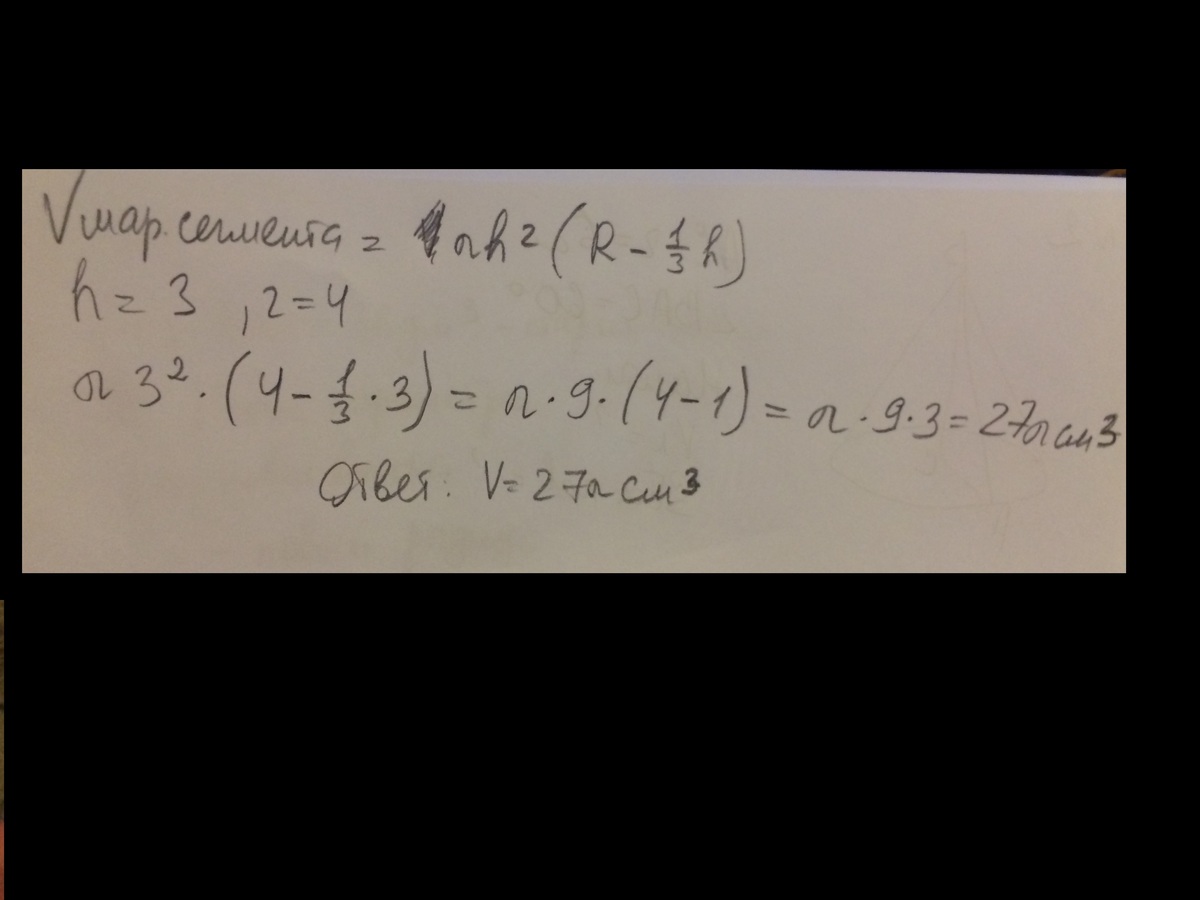 Vшар.сегмента = πh²(R - 1/3 h)
h = 3 , r = 4
π 3² · (4 - 1/3 · 3) = π · 9 · (4 - 1) = π · 9 · 3 = 27π см³
Ответ: V = 27π см³